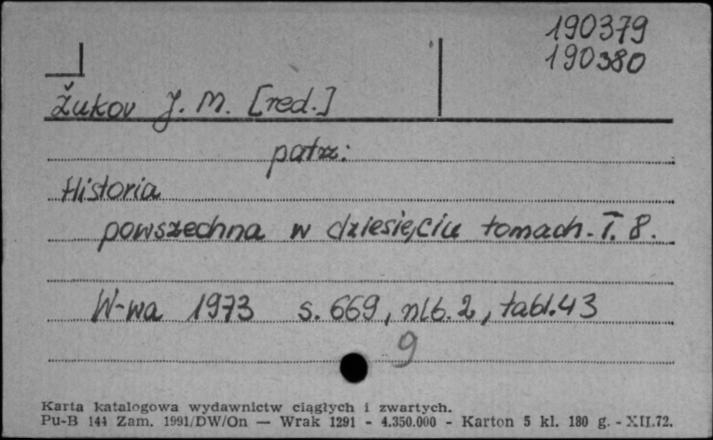 190379
190380
Žukov J. M. [red.]
patrz:
Historia
powszechna w dziesięciu tomach. T. 8.
W-wa 1973 s. 669, nlb. 2, tabl. 43
9
Karta katalogowa wydawnictw ciągłych i zwartych.
Pu-B 144 Zam. 1991/DW/On — Wrak 1291 - 4.350.000 - Karton 5 kl. 180 g. - XII.72.